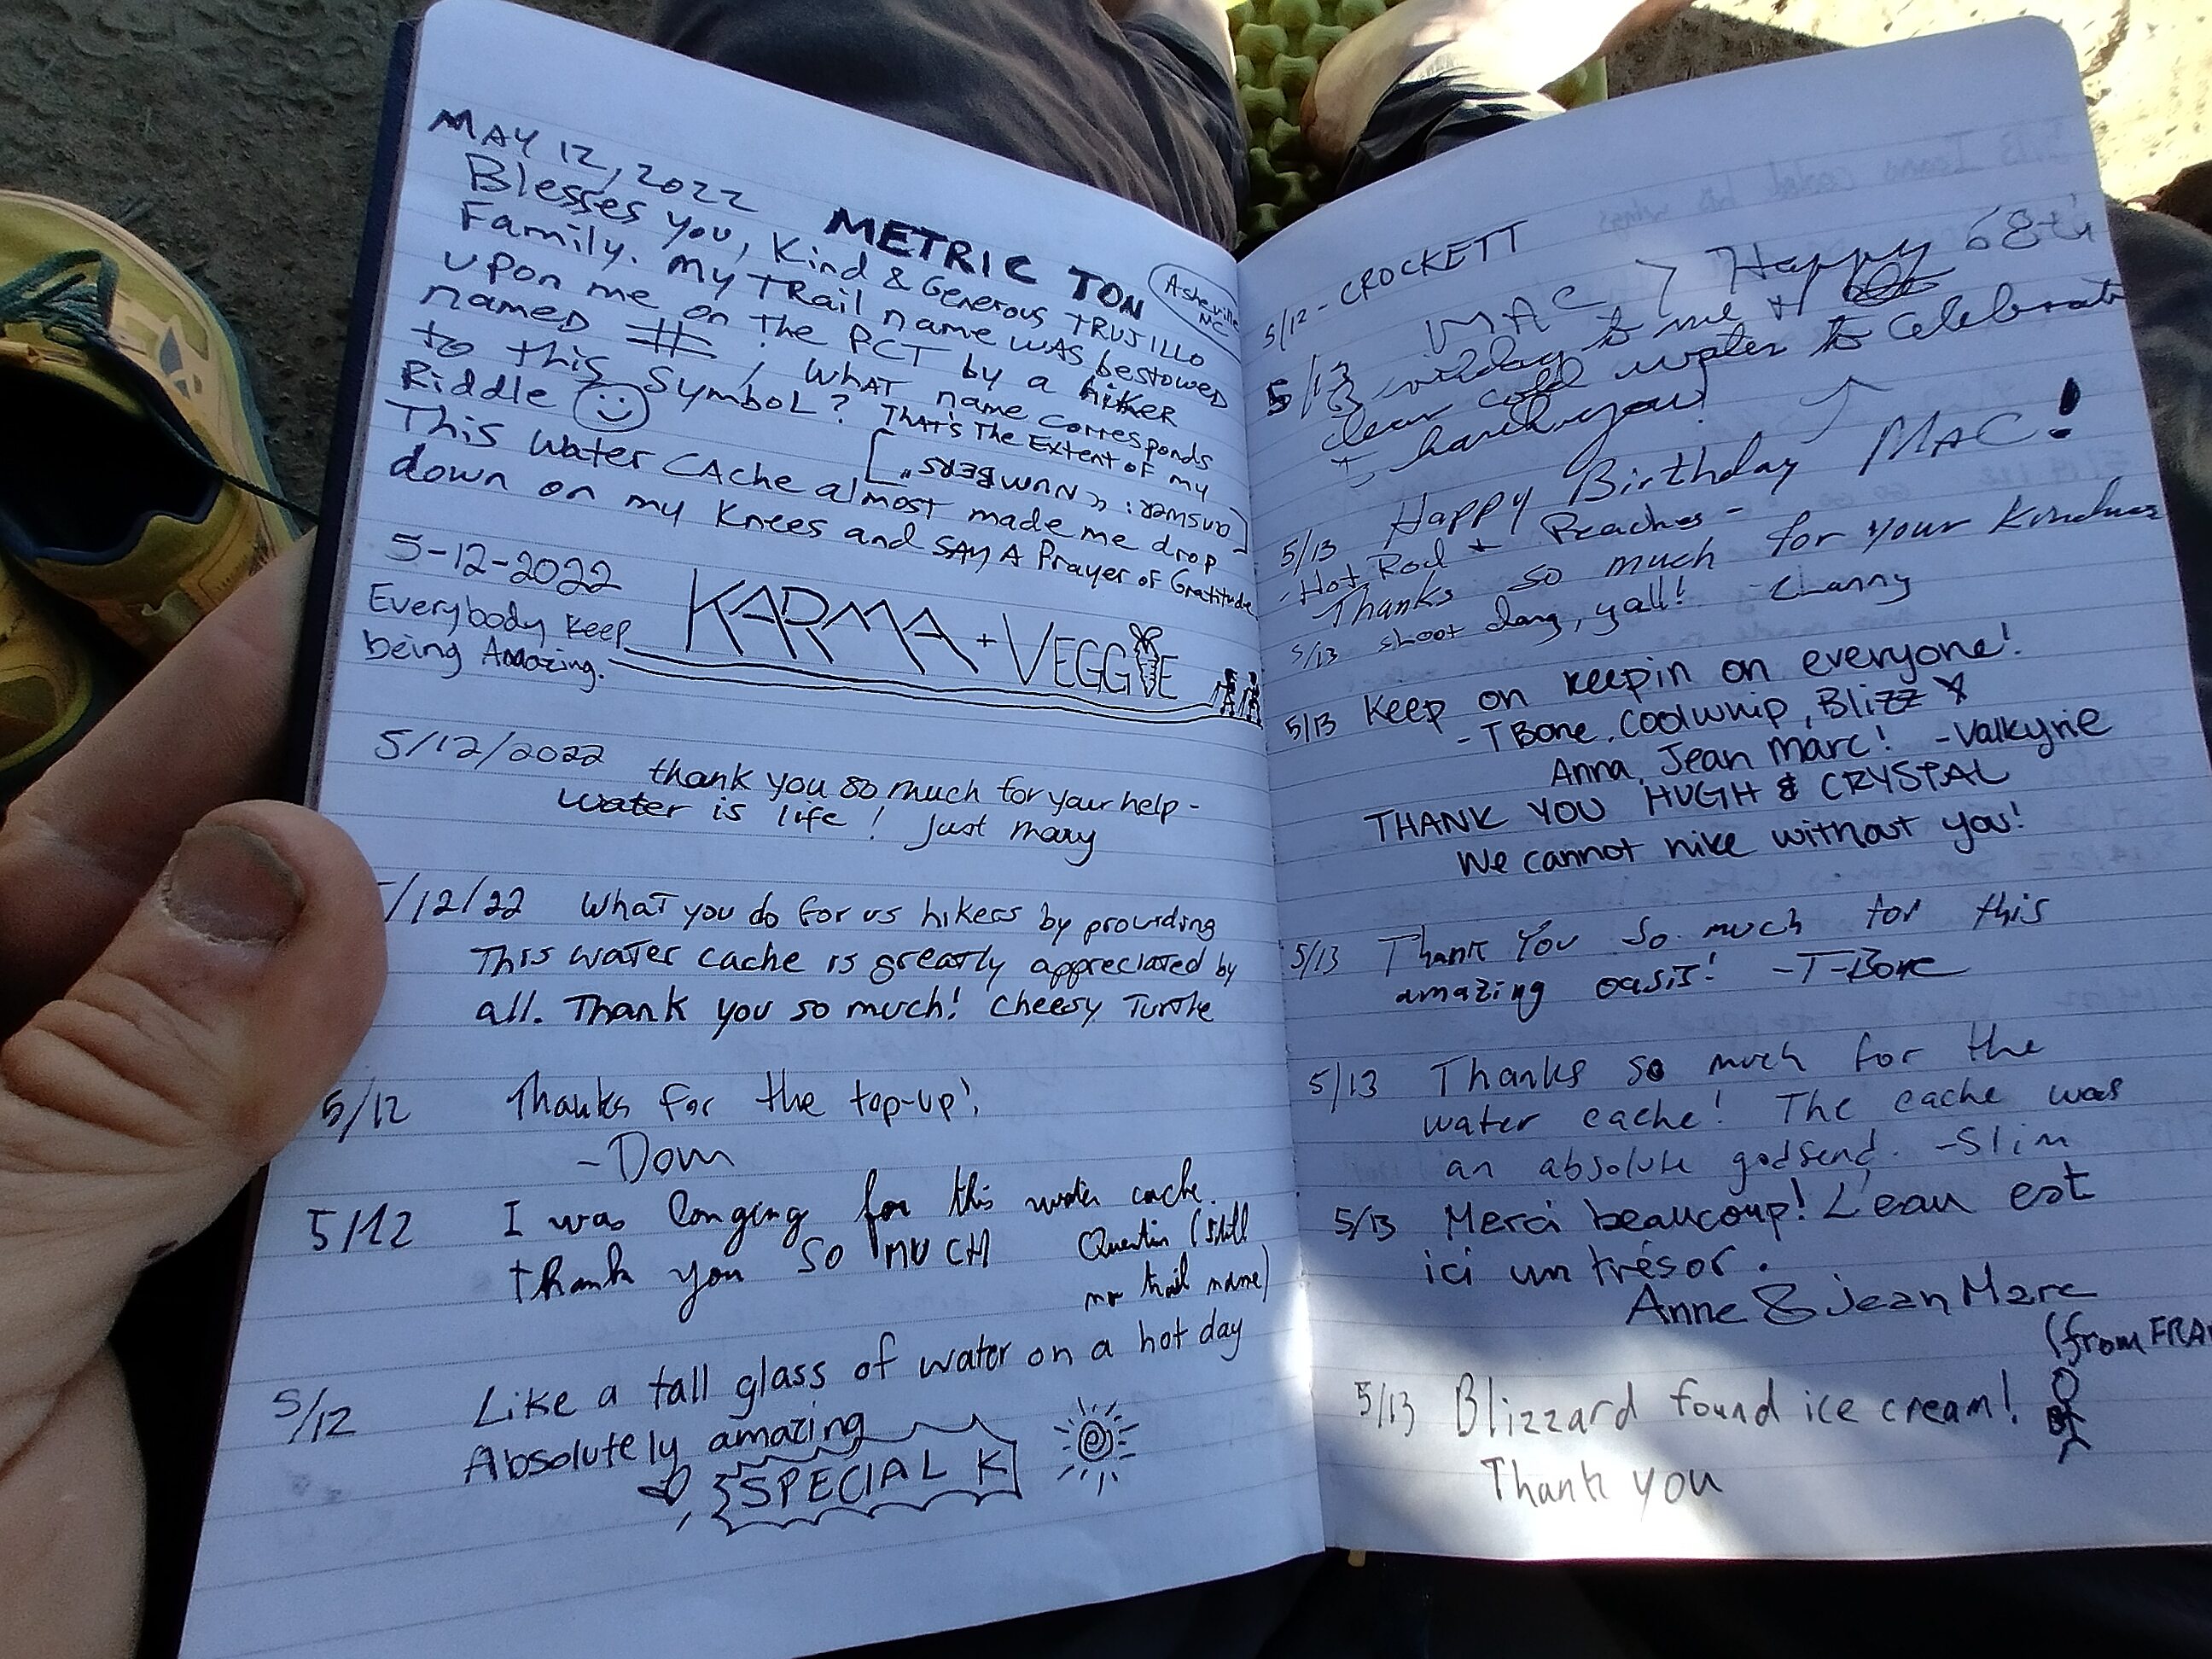 MAY 12, 2022 METRIC TON
Asheville NC
Blesses you, Kind & Generous TRUJILLO
Family. My TRail name was bestowed
upon me on the PCT by a hiker
named #, what name corresponds
to this symbol? That's the Extent of my
Riddle
[answer: "NUMBERS"]
This water cache almost made me drop
down on my knees and say a Prayer of Gratitude
5-12-2022
KARMA + VEGGIE
Everybody keep
being Amazing.
5/12/2022 thank you so much for your help -
water is life! Just Mary
/12/22 What you do for us hikers by providing
This water cache is greatly appreciated by
all. Thank you so much! Cheesy Turtle
5/12 Thanks for the top-up!
- Dom
5/12 I was longing for this water cache.
thank you SO MUCH Quentin (still
no trail name)
5/12 Like a tall glass of water on a hot day
Absolutely amazing
SPECIAL K
5/12 - CROCKETT
5/13 MAC Happy 68th
to me &
clear cold water to celebrate
thank you!
Happy Birthday MAC!
5/13 Hot Rod + Peaches -
Thanks so much for your kindness
5/13 shoot dang, yall! - Channy
5/13 Keep on keepin on everyone!
- T Bone, Coolwhip, Blizz
Anna, Jean Marc! - Valkyrie
THANK YOU HUGH & CRYSTAL
We cannot hike without you!
5/13 Thank you so much for this
amazing oasis! - T-Bone
5/13 Thanks so much for the
water cache! The cache was
an absolute godsend. - Slim
5/13 Merci beaucoup! L'eau est
ici un trésor.
Anne & Jean Marc
(from FRA
5/13 Blizzard found ice cream!
Thank you